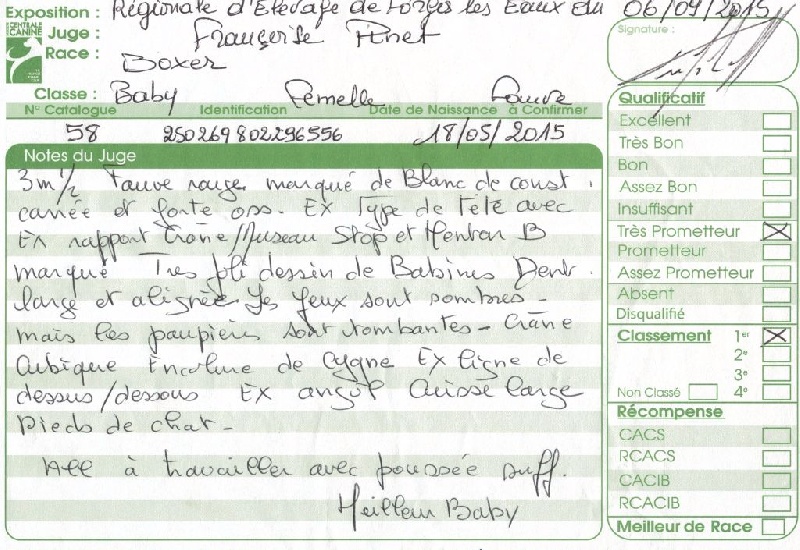 Exposition : Régionale d'Elevage de Forges les Eaux du 06/09/2015
CENTRALE CANINE
Juge : Françoise Pinet
Race : Boxer
Classe : Baby Femelle Fauve
N° Catalogue Identification Date de Naissance à Confirmer
58 250269802296556 18/05/2015
Notes du Juge
3m 1/2 Fauve rouge marqué de Blanc de const.
carrée et forte oss. EX Type de Tété avec
En rapport Crâne/Museau Stop et Menton B
marqué Tres joli dessin de Babines Dent.
large et alignée Les yeux sont sombres -
mais les paupières sont tombantes - Crâne
Cubique Encolure de cygne EX ligne de
dessus/dessous EX angul Cuisse large
Pieds de chat -
All à travailler avec poussée suff.
Meilleur Baby
Signature :
Qualificatif
Excellent
Très Bon
Bon
Assez Bon
Insuffisant
Très Prometteur X
Prometteur
Assez Prometteur
Absent
Disqualifié
Classement 1er X
2e
3e
Non Classé 4e
Récompense
CACS
RCACS
CACIB
RCACIB
Meilleur de Race